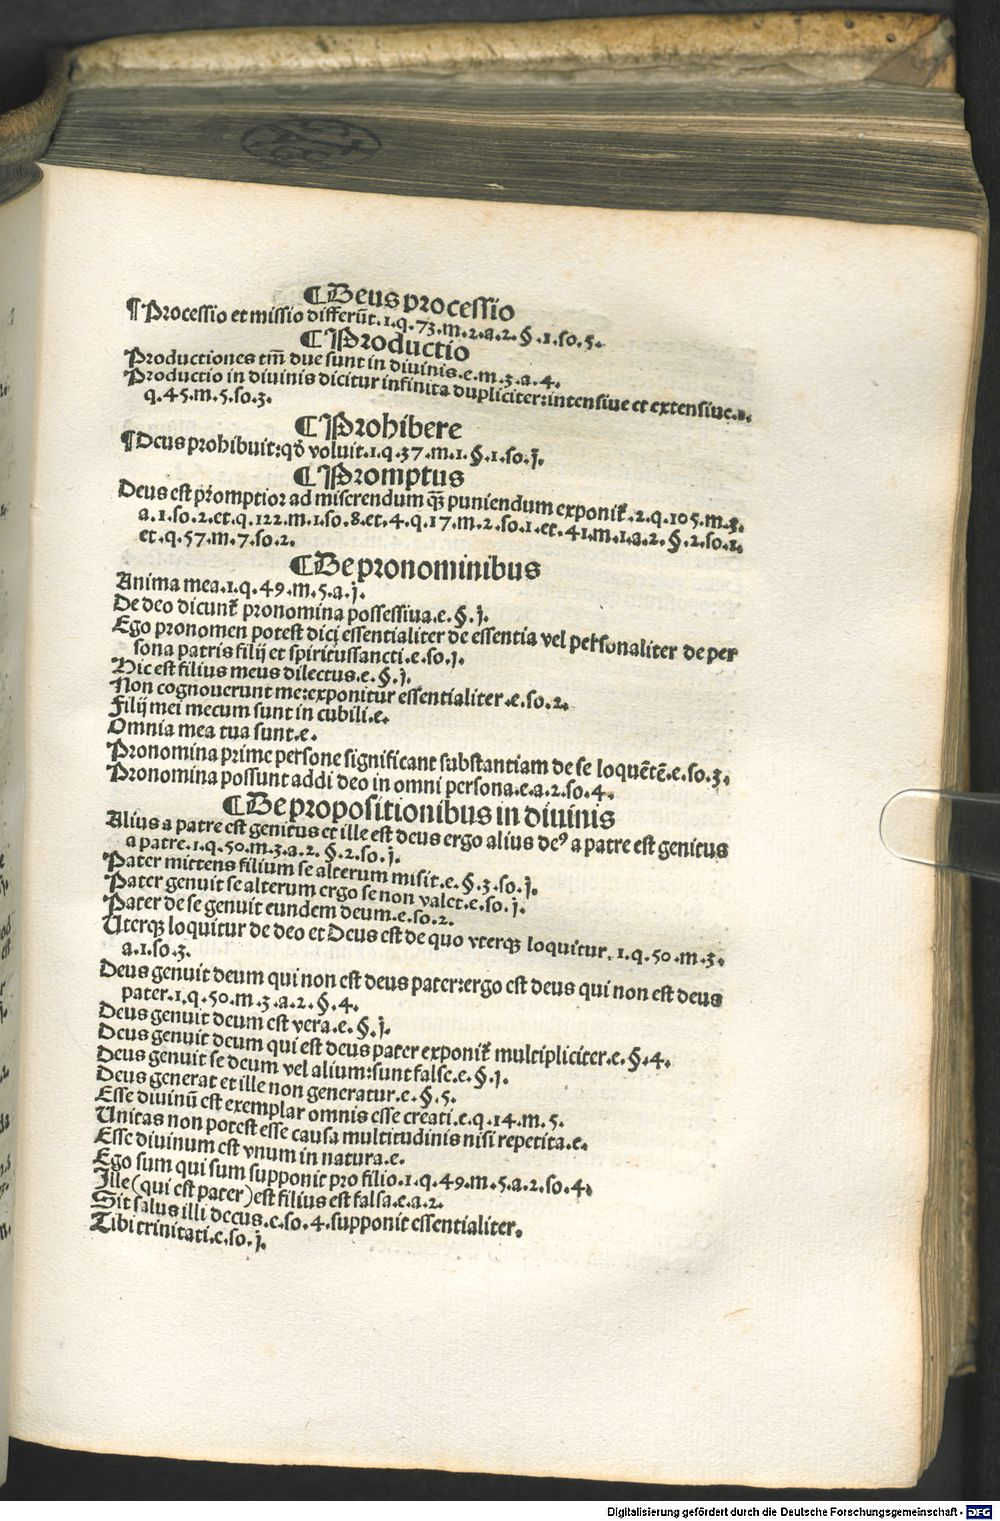 ¶Deus processio
¶Processio et missio differūt.1.q.73.m.2.a.2.§.1.so.5.
¶Productio
Productiones tm̄ due sunt in divinis.e.m.3.a.4.
Productio in divinis dicitur infinita dupliciter:intensive et extensive.1.
q.45.m.5.so.3.
¶Prohibere
¶Deus prohibuit:qđ voluit.1.q.37.m.1.§.1.so.j.
¶Promptus
Deus est promptior ad miserendum q̄ȝ puniendum exponit᷑.2.q.105.m.3.
a.1.so.2.et.q.122.m.1.so.8.et.4.q.17.m.2.so.1.et.41.m.1.a.2.§.2.so.1.
et.q.57.m.7.so.2.
¶De pronominibus
Anima mea.1.q.49.m.5.a.j.
De deo dicunt᷑ pronomina possessiva.e.§.j.
Ego pronomen potest dicj essentialiter de essentia vel personaliter de per
sona patris filij et spiritussancti.e.so.j.
Hic est filius meus dilectus.e.§.j.
Non cognoverunt me:exponitur essentialiter.e.so.2.
Filij mei mecum sunt in cubili.e.
Omnia mea tua sunt.e.
Pronomina prime persone significant substantiam de se loquētē.e.so.3.
Pronomina possunt addi deo in omni persona.e.a.2.so.4.
¶De propositionibus in divinis
Alius a patre est genitus et ille est deus ergo alius deꝰ a patre est genitus
a patre.1.q.50.m.3.a.2.§.2.so.j.
Pater mittens filium se alterum misit.e.§.3.so.j.
Pater genuit se alterum ergo se non valet.e.so.j.
Pater de se genuit eundem deum.e.so.2.
Uterqȝ loquitur de deo et Deus est de quo vterqȝ loquitur.1.q.50.m.3.
a.1.so.3.
Deus genuit deum qui non est deus pater:ergo est deus qui non est deus
pater.1.q.50.m.3.a.2.§.4.
Deus genuit deum est vera.e.§.j.
Deus genuit deum qui est deus pater exponit᷑ multipliciter.e.§.4.
Deus genuit se deum vel alium:sunt false.e.§.j.
Deus generat et ille non generatur.e.§.5.
Esse divinū est exemplar omnis esse creati.e.q.14.m.5.
Unitas non potest esse causa multitudinis nisi repetita.e.
Esse divinum est vnum in natura.e.
Ego sum qui sum supponit pro filio.1.q.49.m.5.a.2.so.4.
Ille (qui est pater) est filius est falsa.e.a.2.
Sit salus illi decus.e.so.4.supponit essentialiter.
Tibi trinitati.e.so.j.
Digitalisierung gefördert durch die Deutsche Forschungsgemeinschaft - DFG